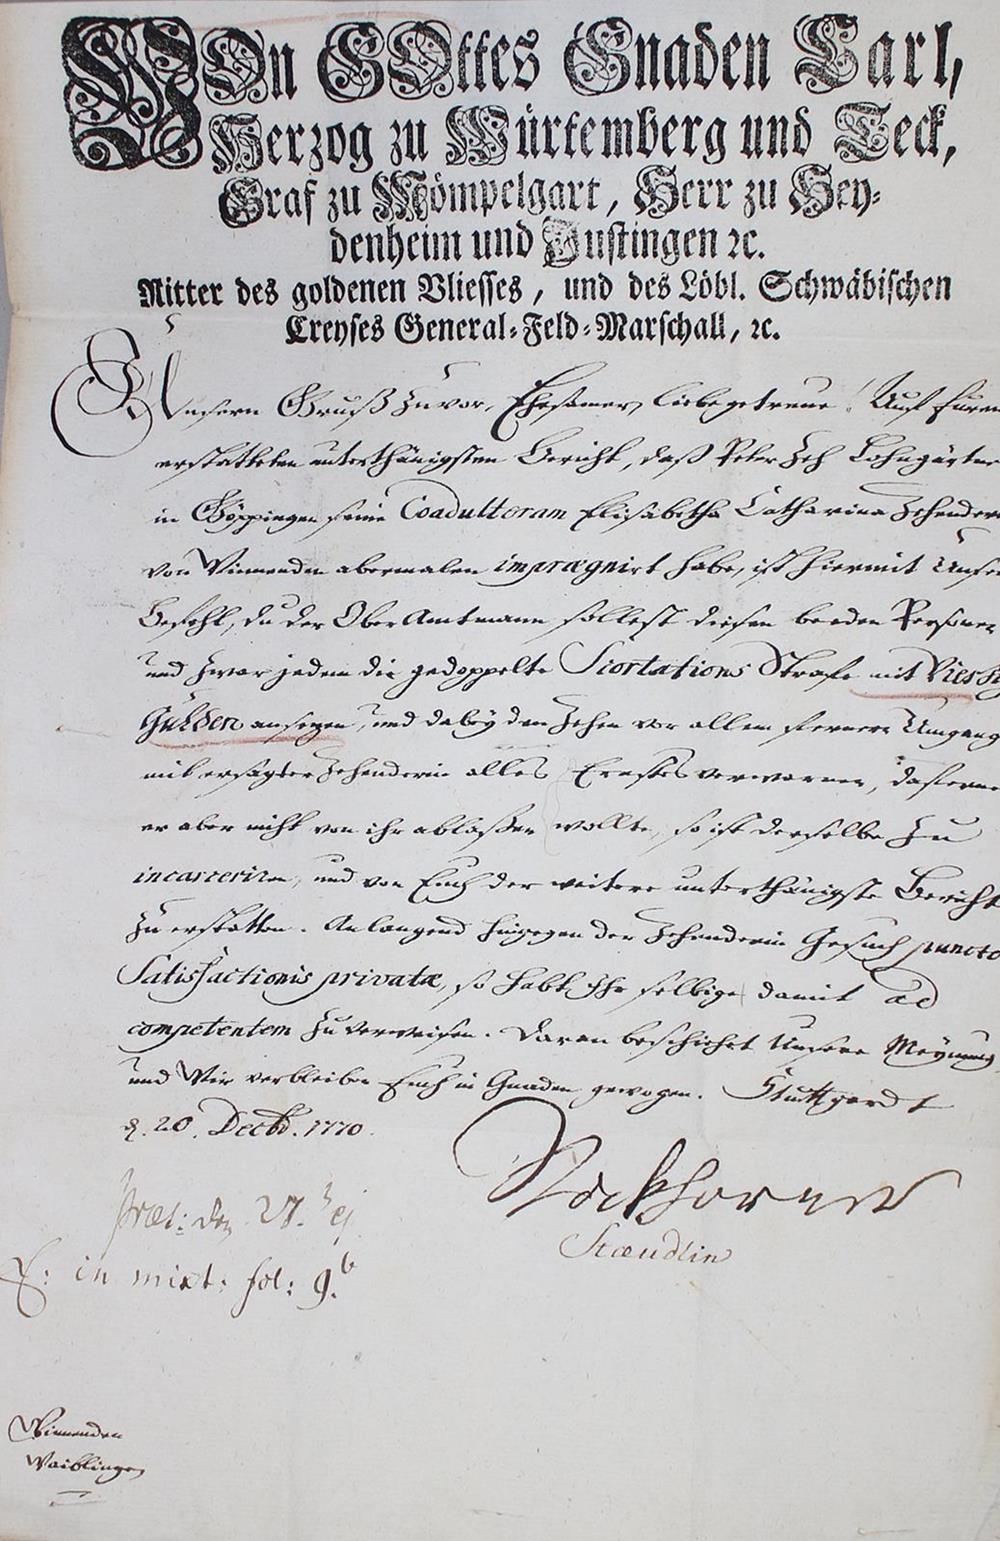 VOn GOttes Gnaden Carl,
Herzog zu Würtemberg und Teck,
Graf zu Mömpelgart, Herr zu Hey=
denheim und Justingen ꝛc.
Ritter des goldenen Vliesses, und des Löbl. Schwäbischen
Creyses General=Feld=Marschall, ꝛc.
Unsern Gruß zuvor, Ehrsamer, liebe getreue! Auf Euren
erstatteten unterthänigsten Bericht, daß Peter Zeh
in Göppingen seine Coadulteram Elisabetha Catharina Zehenderin
von Winnenden abermalen imprægnirt habe, ist hiermit Unser
Befehl, du der Ober Amtmann sollest diesen beeden Personen
und zwar jedem die gedoppelte Scortations Strafe mit Vierzig
Gulden ansezen, und dabey den Zehen vor allem fernern Umgang
mit ersagter Zehenderin alles Ernstes verwarnen, daferne
er aber nicht von ihr ablaßen wollte, so ist derselbe zu
incarceriren, und von Euch der weitere unterthänigste Bericht
zu erstatten. Anlangend hingegen der Zehenderin Gesuch puncto
Satisfactionis privatæ, so habt Ihr selbige damit ad
competentem zu verweisen. Daran beschiehet Unsere Meynung
und Wir verbleiben Euch in Gnaden gewogen. Stuttgardt
d. 20. Decbr. 1770.
Præs: den 27.
Stockhorner
Stæudlin
E: in mixt: fol: 9.b
Winnenden
Waiblingen